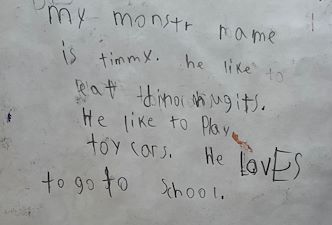 my monstr name
is timmy. he like to
eat
He like to Play
toy cars. He LOVES
to go to school.